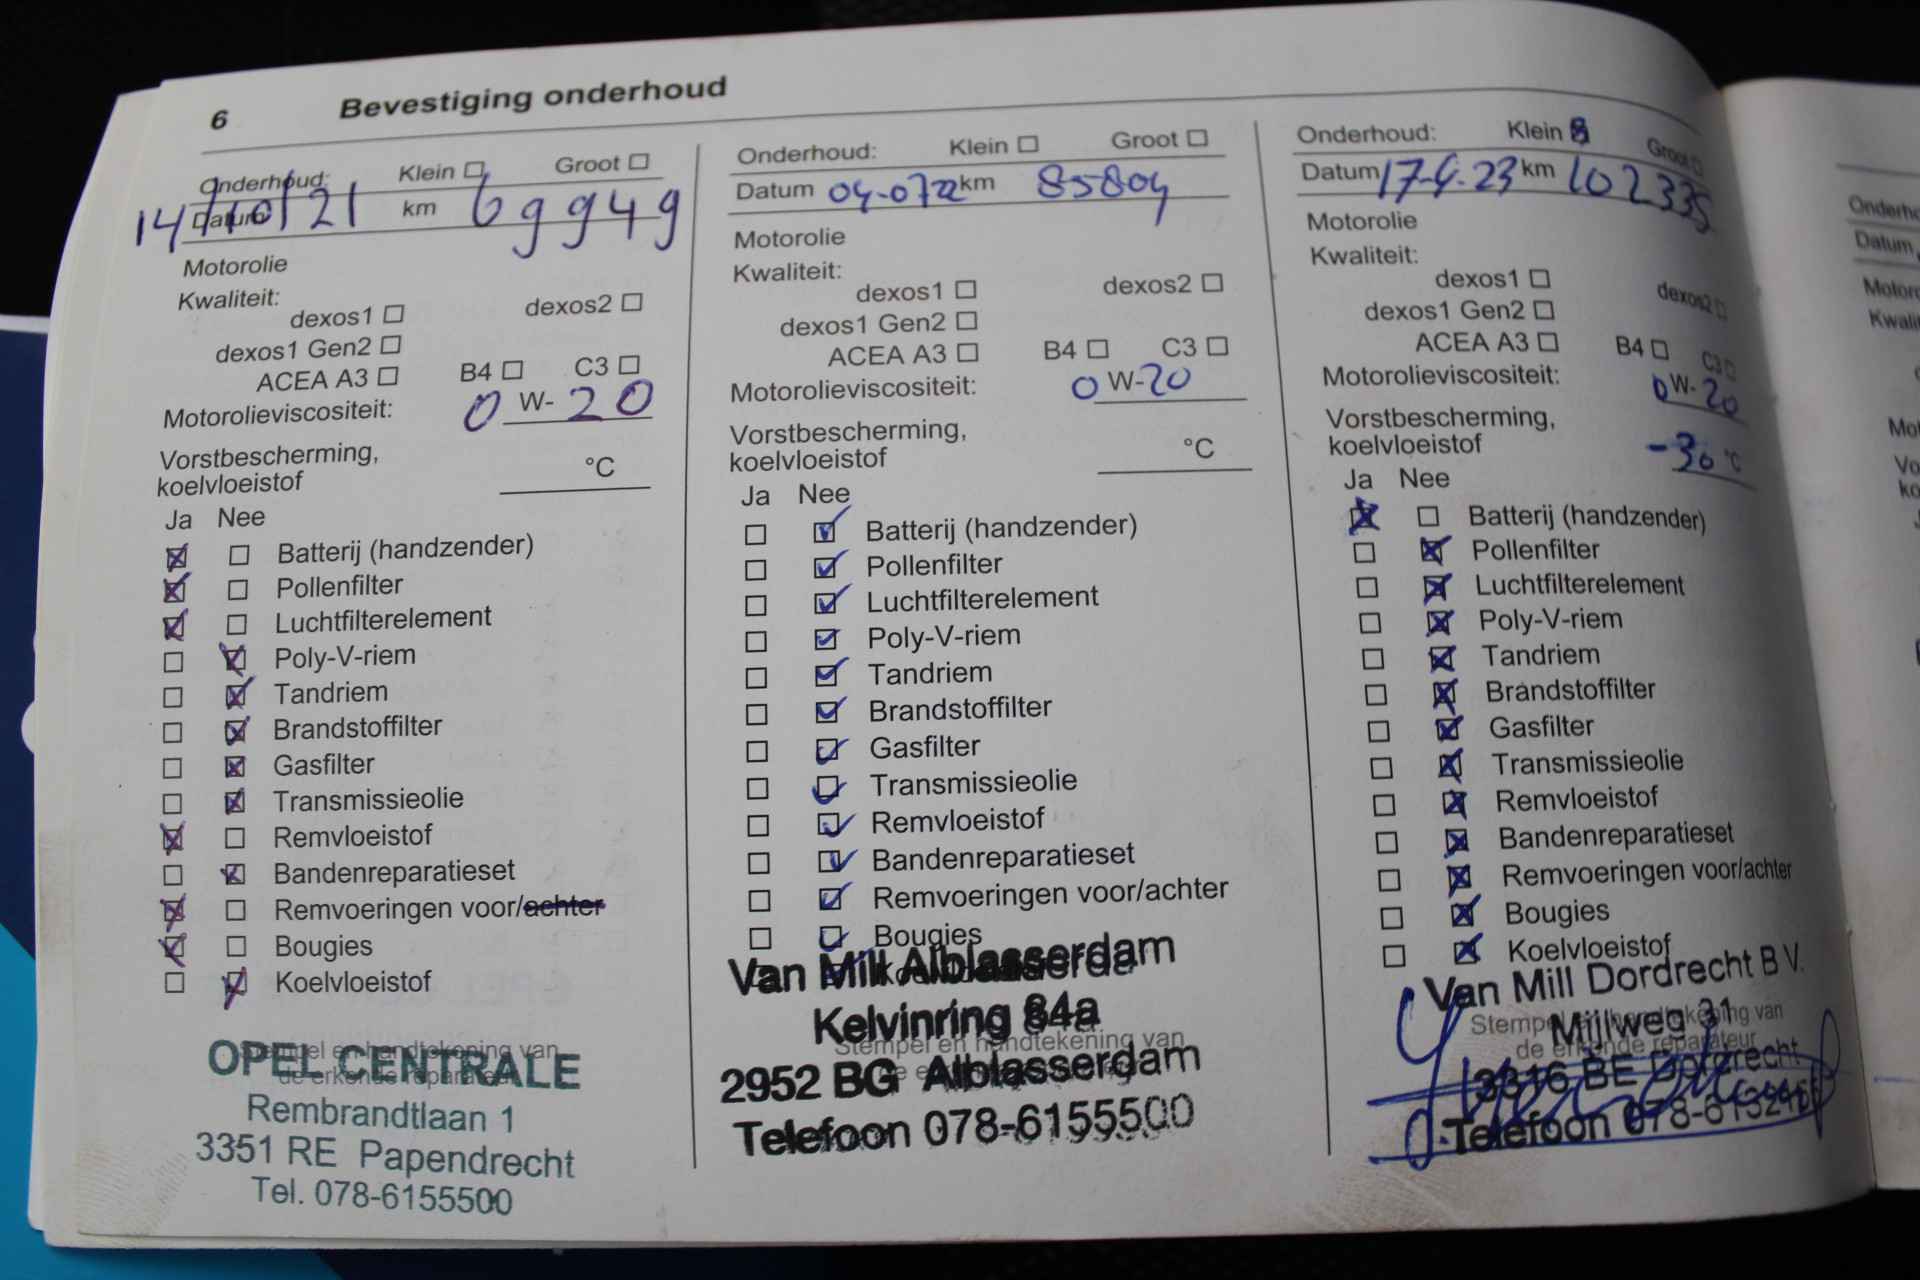 6 Bevestiging onderhoud
Onderhoud: Klein ☐ Groot ☐
Datum 14/10/21 km 69949
Motorolie
Kwaliteit:
dexos1 ☐ dexos2 ☐
dexos1 Gen2 ☐
ACEA A3 ☐ B4 ☐ C3 ☐
Motorolieviscositeit: 0 W- 20
Vorstbescherming,
koelvloeistof °C
Ja Nee
☒ ☐ Batterij (handzender)
☒ ☐ Pollenfilter
☒ ☐ Luchtfilterelement
☐ ☒ Poly-V-riem
☐ ☒ Tandriem
☐ ☒ Brandstoffilter
☐ ☒ Gasfilter
☐ ☒ Transmissieolie
☒ ☐ Remvloeistof
☐ ☒ Bandenreparatieset
☒ ☐ Remvoeringen voor/achter
☒ ☐ Bougies
☐ ☒ Koelvloeistof
Stempel en handtekening van
de erkende reparateur
OPEL CENTRALE
Rembrandtlaan 1
3351 RE Papendrecht
Tel. 078-6155500
Onderhoud: Klein ☐ Groot ☐
Datum 04-0722 km 85804
Motorolie
Kwaliteit:
dexos1 ☐ dexos2 ☐
dexos1 Gen2 ☐
ACEA A3 ☐ B4 ☐ C3 ☐
Motorolieviscositeit: 0 W-20
Vorstbescherming,
koelvloeistof °C
Ja Nee
☐ ☑ Batterij (handzender)
☐ ☑ Pollenfilter
☐ ☑ Luchtfilterelement
☐ ☑ Poly-V-riem
☐ ☑ Tandriem
☐ ☑ Brandstoffilter
☐ ☑ Gasfilter
☐ ☑ Transmissieolie
☐ ☑ Remvloeistof
☐ ☑ Bandenreparatieset
☐ ☑ Remvoeringen voor/achter
☐ ☑ Bougies
Van Mill Alblasserdam
Kelvinring 84a
Stempel en handtekening van
2952 BG Alblasserdam
Telefoon 078-6155500
Onderhoud: Klein ☒ Groot ☐
Datum 17-4-23 km 102335
Motorolie
Kwaliteit:
dexos1 ☐ dexos2 ☐
dexos1 Gen2 ☐
ACEA A3 ☐ B4 ☐ C3 ☐
Motorolieviscositeit: 0 W- 20
Vorstbescherming,
koelvloeistof -30 °C
Ja Nee
☒ ☐ Batterij (handzender)
☐ ☒ Pollenfilter
☐ ☒ Luchtfilterelement
☐ ☒ Poly-V-riem
☐ ☒ Tandriem
☐ ☒ Brandstoffilter
☐ ☒ Gasfilter
☐ ☒ Transmissieolie
☐ ☒ Remvloeistof
☐ ☒ Bandenreparatieset
☐ ☒ Remvoeringen voor/achter
☐ ☒ Bougies
☐ ☒ Koelvloeistof
Van Mill Dordrecht B.V.
Stempel en handtekening van
Mijlweg 31
de erkende reparateur
3316 BE Dordrecht
Telefoon
Datum